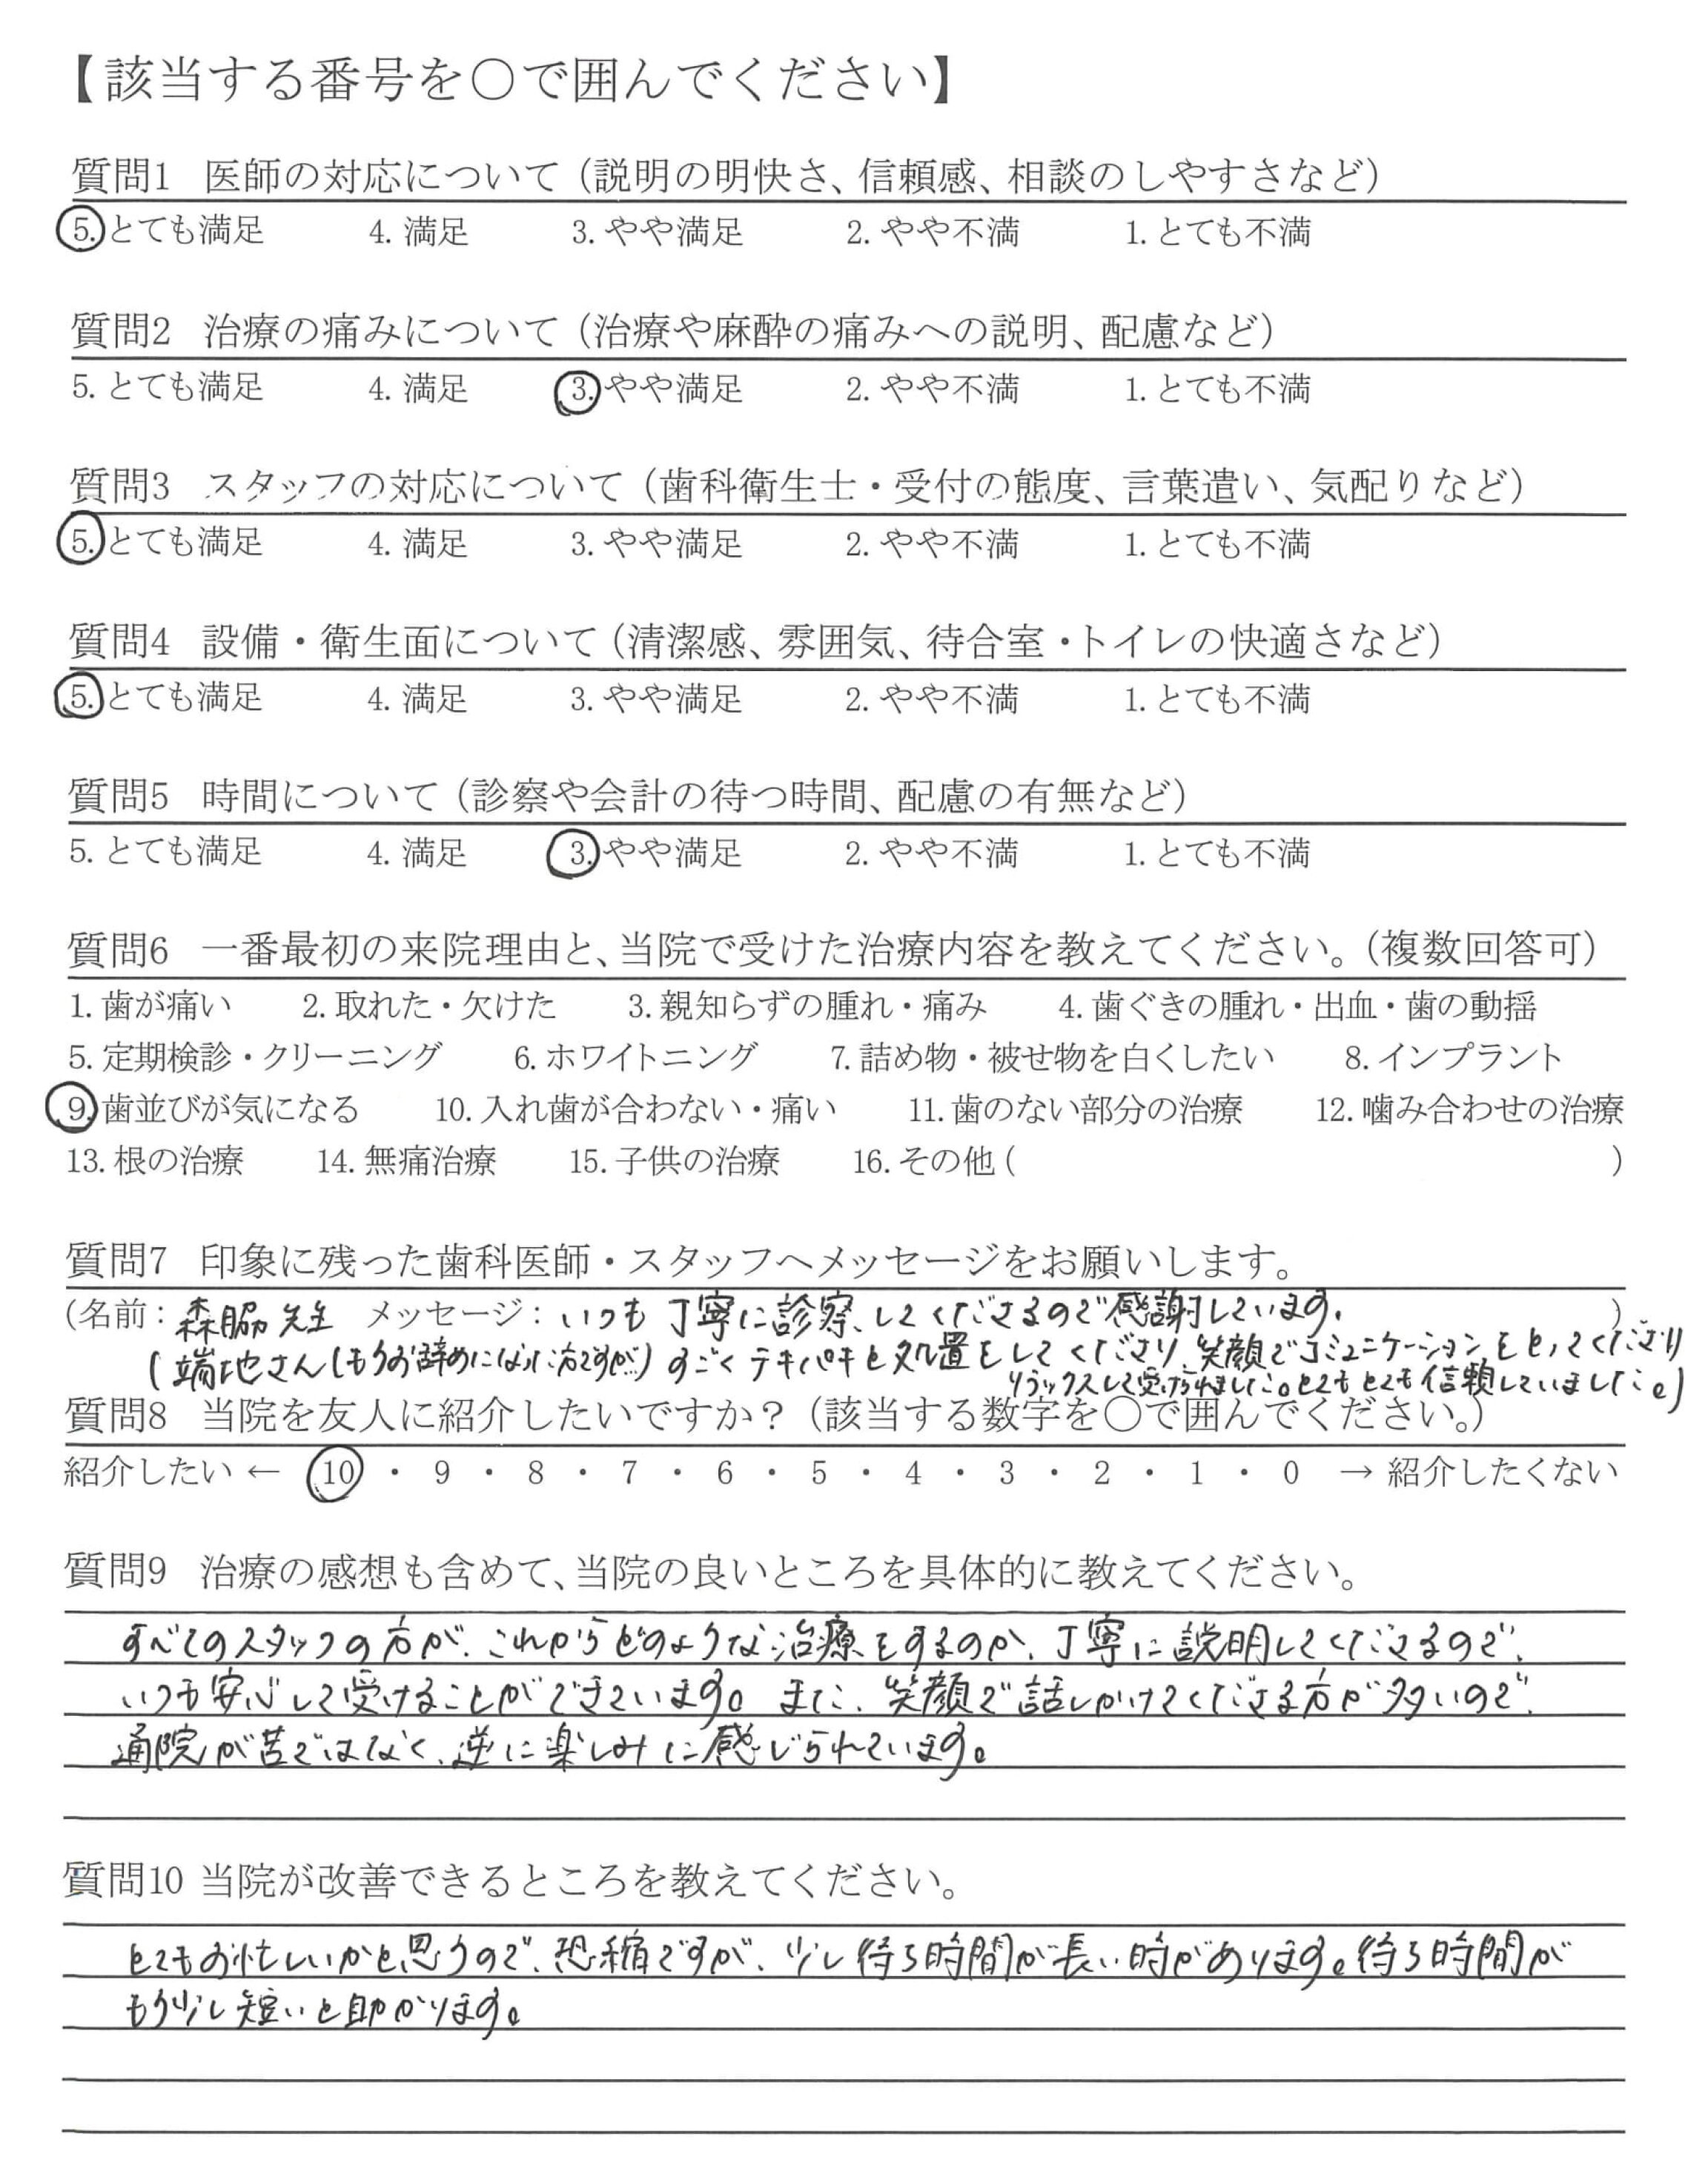 【該当する番号を〇で囲んでください】
質問1 医師の対応について（説明の明快さ、信頼感、相談のしやすさなど）
5. とても満足 4. 満足 3. やや満足 2. やや不満 1. とても不満
質問2 治療の痛みについて（治療や麻酔の痛みへの説明、配慮など）
5. とても満足 4. 満足 3. やや満足 2. やや不満 1. とても不満
質問3 スタッフの対応について（歯科衛生士・受付の態度、言葉遣い、気配りなど）
5. とても満足 4. 満足 3. やや満足 2. やや不満 1. とても不満
質問4 設備・衛生面について（清潔感、雰囲気、待合室・トイレの快適さなど）
5. とても満足 4. 満足 3. やや満足 2. やや不満 1. とても不満
質問5 時間について（診察や会計の待つ時間、配慮の有無など）
5. とても満足 4. 満足 3. やや満足 2. やや不満 1. とても不満
質問6 一番最初の来院理由と、当院で受けた治療内容を教えてください。（複数回答可）
1. 歯が痛い 2. 取れた・欠けた 3. 親知らずの腫れ・痛み 4. 歯ぐきの腫れ・出血・歯の動揺
5. 定期検診・クリーニング 6. ホワイトニング 7. 詰め物・被せ物を白くしたい 8. インプラント
9. 歯並びが気になる 10. 入れ歯が合わない・痛い 11. 歯のない部分の治療 12. 噛み合わせの治療
13. 根の治療 14. 無痛治療 15. 子供の治療 16. その他 ( )
質問7 印象に残った歯科医師・スタッフへメッセージをお願いします。
(名前： 森脇先生 メッセージ： いつも丁寧に診察してくださるので感謝しています. )
(端地さん(もうお辞めになった方ですが) すごくテキパキと処置をしてくださり笑顔でコミュニケーションをとってくださり
リラックスして受けられました。とてもとても信頼していました。)
質問8 当院を友人に紹介したいですか？（該当する数字を〇で囲んでください。）
紹介したい ← 10 ・ 9 ・ 8 ・ 7 ・ 6 ・ 5 ・ 4 ・ 3 ・ 2 ・ 1 ・ 0 → 紹介したくない
質問9 治療の感想も含めて、当院の良いところを具体的に教えてください。
すべてのスタッフの方が、これからどのような治療をするのか、丁寧に説明してくださるので、
いつも安心して受けることができています。また、笑顔で話しかけてくださる方が多いので、
通院が苦ではなく、逆に楽しみに感じられています。
質問10 当院が改善できるところを教えてください。
とてもお忙しいかと思うので、恐縮ですが、少し待つ時間が長い時があります。待つ時間が
もう少し短いと助かります。